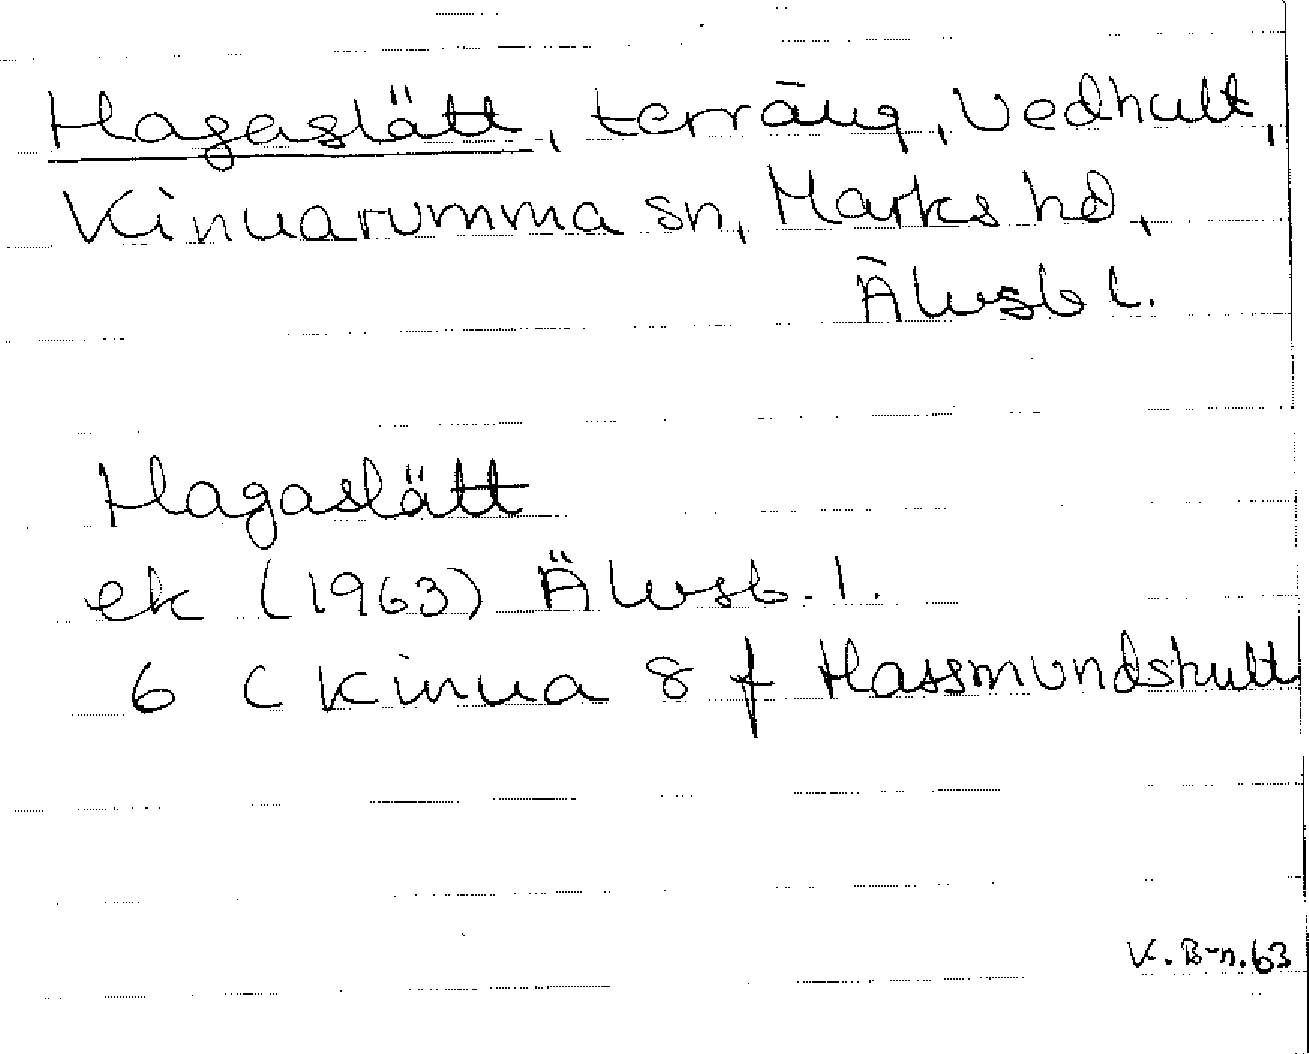 Hagaslätt, terräng, Vedhult,
Kinnarumma sn, Marks hd,
Älvsb l.
Hagaslätt
ek (1963) Älvsb. l.
6 C Kinna 8 f Hassmundshult
K. B-n. 63